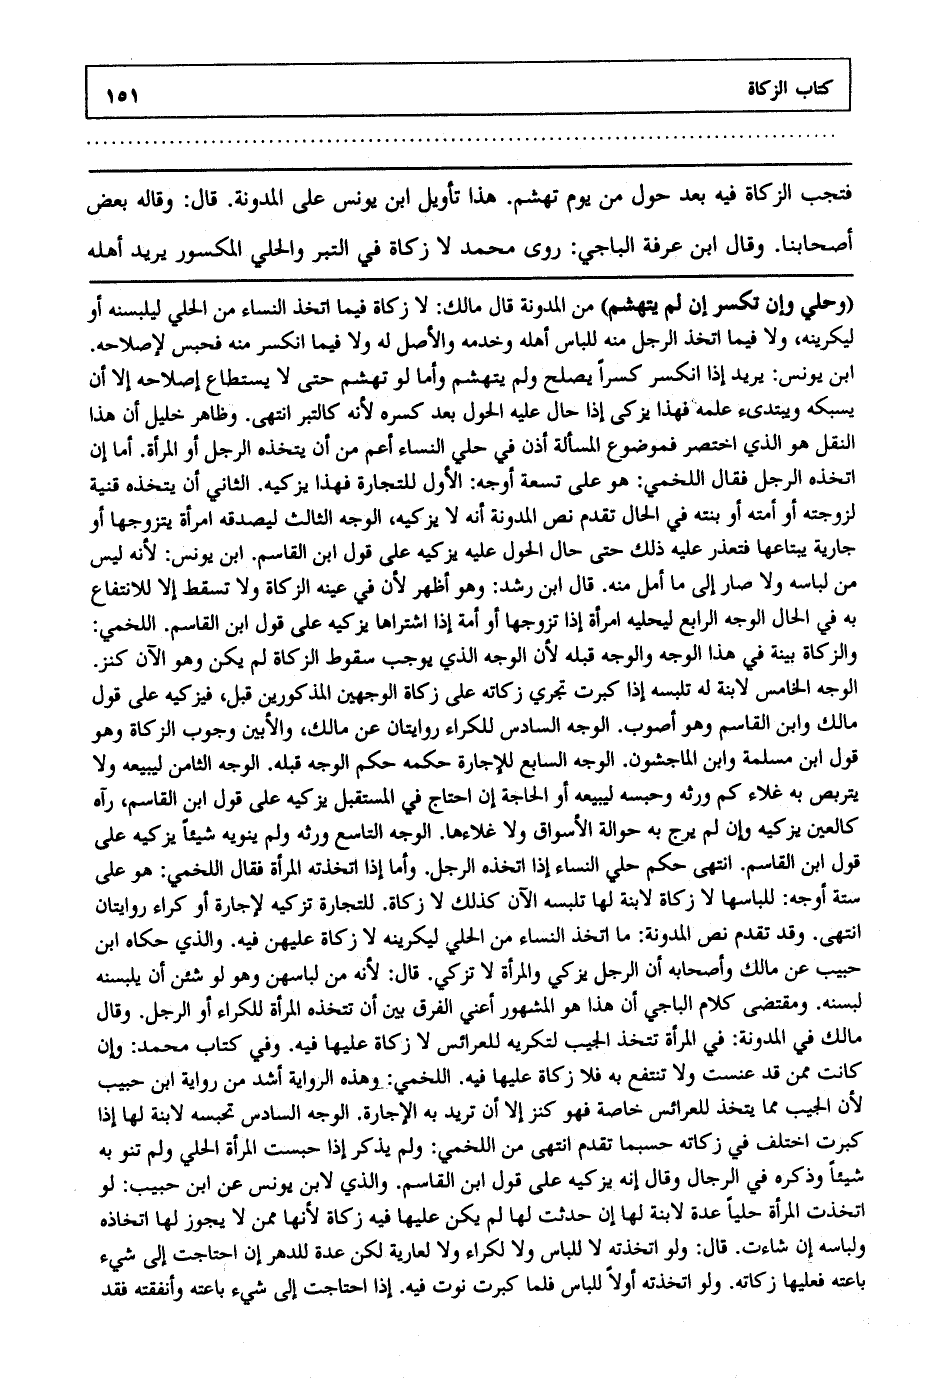 كتاب الزكاة
١٥١
فتجب الزكاة فيه بعد حول من يوم تهشم. هذا تأويل ابن يونس على المدونة. قال: وقاله بعض
أصحابنا. وقال ابن عرفة الباجي: روى محمد لا زكاة في التبر والحلي المكسور يريد أهله
(وحلي وإن تكسر إن لم يتهشم) من المدونة قال مالك: لا زكاة فيما اتخذ النساء من الحلي ليلبسنه أو
ليكرينه، ولا فيما اتخذ الرجل منه للباس أهله وخدمه والأصل له ولا فيما انكسر منه فحبس لإصلاحه.
ابن يونس: يريد إذا انكسر كسراً يصلح ولم يتهشم وأما لو تهشم حتى لا يستطاع إصلاحه إلا أن
يسبكه ويبتدىء علمه فهذا يزكى إذا حال عليه الحول بعد كسره لأنه كالتبر انتهى. وظاهر خليل أن هذا
النقل هو الذي اختصر فموضوع المسألة أذن في حلي النساء أعم من أن يتخذه الرجل أو المرأة. أما إن
اتخذه الرجل فقال اللخمي: هو على تسعة أوجه: الأول للتجارة فهذا يزكيه. الثاني أن يتخذه قنية
لزوجته أو أمته أو بنته في الحال تقدم نص المدونة أنه لا يزكيه، الوجه الثالث ليصدقه امرأة يتزوجها أو
جارية يبتاعها فتعذر عليه ذلك حتى حال الحول عليه يزكيه على قول ابن القاسم. ابن يونس: لأنه ليس
من لباسه ولا صار إلى ما أمل منه. قال ابن رشد: وهو أظهر لأن في عينه الزكاة ولا تسقط إلا للانتفاع
به في الحال الوجه الرابع ليحليه امرأة إذا تزوجها أو أمة إذا اشتراها يزكيه على قول ابن القاسم. اللخمي:
والزكاة بينة في هذا الوجه والوجه قبله لأن الوجه الذي يوجب سقوط الزكاة لم يكن وهو الآن كنز.
الوجه الخامس لابنة له تلبسه إذا كبرت تجري زكاته على زكاة الوجهين المذكورين قبل، فيزكيه على قول
مالك وابن القاسم وهو أصوب. الوجه السادس للكراء روايتان عن مالك، والأبين وجوب الزكاة وهو
قول ابن مسلمة وابن الماجشون. الوجه السابع للإجارة حكمه حكم الوجه قبله. الوجه الثامن ليبيعه ولا
يتربص به غلاء كم ورثه وحبسه ليبيعه أو الحاجة إن احتاج في المستقبل يزكيه على قول ابن القاسم، رآه
كالعين يزكيه وإن لم يرج به حوالة الأسواق ولا غلاءها. الوجه التاسع ورثه ولم ينويه شيئاً يزكيه على
قول ابن القاسم. انتهى حكم حلي النساء إذا اتخذه الرجل. وأما إذا اتخذته المرأة فقال اللخمي: هو على
ستة أوجه: للباسها لا زكاة لابنة لها تلبسه الآن كذلك لا زكاة. للتجارة تزكيه لإجارة أو كراء روايتان
انتهى. وقد تقدم نص المدونة: ما اتخذ النساء من الحلي ليكرينه لا زكاة عليهن فيه. والذي حكاه ابن
حبيب عن مالك وأصحابه أن الرجل يزكي والمرأة لا تزكي. قال: لأنه من لباسهن وهو لو شئن أن يلبسنه
لبسنه. ومقتضى كلام الباجي أن هذا هو المشهور أعني الفرق بين أن تتخذه المرأة للكراء أو الرجل. وقال
مالك في المدونة: في المرأة تتخذ الجيب لتكريه للعرائس لا زكاة عليها فيه. وفي كتاب محمد: وإن
كانت ممن قد عنست ولا تنتفع به فلا زكاة عليها فيه. اللخمي: وهذه الرواية أشد من رواية ابن حبيب
لأن الجيب مما يتخذ للعرائس خاصة فهو كنز إلا أن تريد به الإجارة. الوجه السادس تحبسه لابنة لها إذا
كبرت اختلف في زكاته حسبما تقدم انتهى من اللخمي: ولم يذكر إذا حبست المرأة الحلي ولم تنو به
شيئاً وذكره في الرجال وقال إنه يزكيه على قول ابن القاسم. والذي لابن يونس عن ابن حبيب: لو
اتخذت المرأة حلياً عدة لابنة لها إن حدثت لها لم يكن عليها فيه زكاة لأنها ممن لا يجوز لها اتخاذه
ولباسه إن شاءت. قال: ولو اتخذته لا للباس ولا لكراء ولا لعارية لكن عدة للدهر إن احتاجت إلى شيء
باعته فعليها زكاته. ولو اتخذته أولاً للباس فلما كبرت نوت فيه. إذا احتاجت إلى شيء باعته وأنفقته فقد